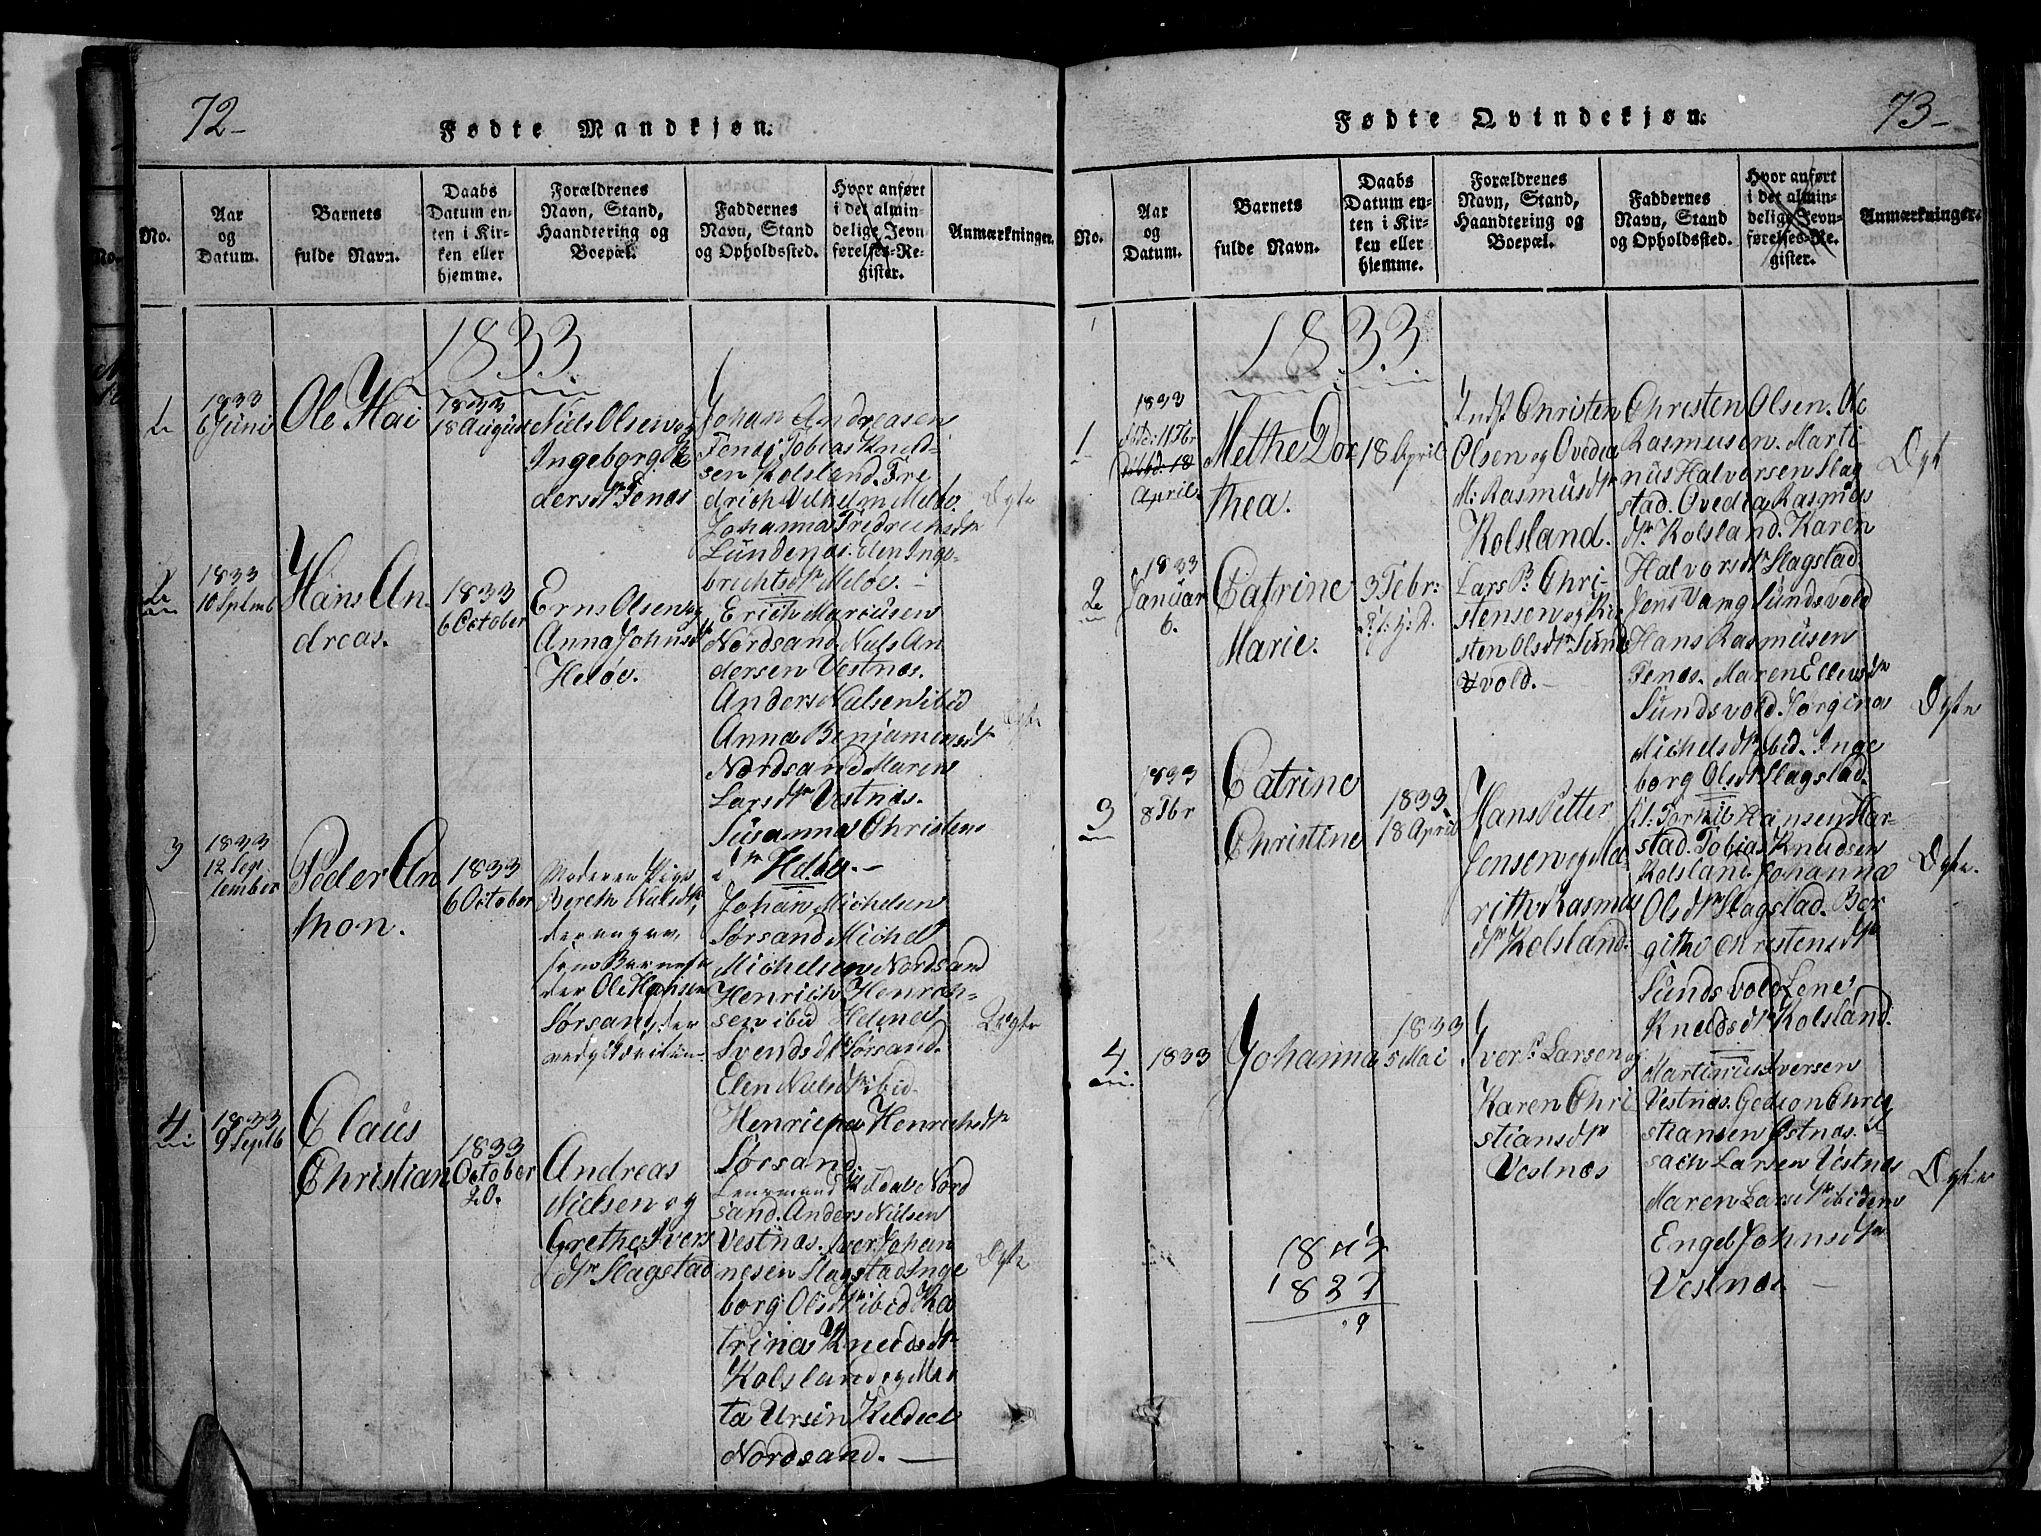 72-
Fødte Mandkjøn.
No.
Aar
og
Datum.
Barnets
fulde Navn.
Daabs
Datum en-
ten i Kir-
ken eller
hjemme.
Forældrenes
Navn, Stand,
Haandtering og
Boepæl.
Faddernes
Navn, Stand
og Opholdssted.
Hvor anført
i det almin-
delige Jevn
førelses-Re-
gister.
Anmærkninger.
1833
1833
6 Juni
Ole Kai
1833
18 August
Niels Olsen og
Ingeborg Pe
dersdtr Tenas
Johan Andreasen
Tenas Tobias Knud-
sen Kolsland. Fre
drich Vilhelm Meløe.
Johanna Fredrichsdtr
Lundenæs. Elen Inge-
brechtsdtr Meløe. -
Ægte
2
1833
10 Septemb
Hans An-
dreas.
1833
6 October
Erns Olsen og
Anna Johnsdtr
Heløe.
Erich Mariusen
Nordsand Niels An
dersen Vestnæs.
Anders Nielsen ibid
Anna Benjaminsdtr
Nordsand Maren
Larsdtr Vestnæs.
Susanna Christens
dtr Heløe. -
Ægte
3
1833
12 Sep
tember
Peder An
thon.
1833
6 October
Moderen Pige
Bereth Nielsdtr,
der angav,
som Barnefa
der Ole Hansen
Sørsand, der
Johan Michelsen
Sørsand Michel
Michelsen Nordsand
Henrich Henrich-
sen ibid Helena
Svendsdtr Sørsand.
Elen Nielsdtr ibid.
Henricha Henrichsdtr
Sørsand.
Uægte
4
1833
9 Septb
Claus
Christian
1833
October
20.
Andreas
Nielsen og
Grethe Ivers
dtr Slagstad
Lensmand Klæbo Nord
sand. Anders Nielsen
Vestnæs. Iver Johan
nesen Slagstad Inge
borg Olsdtr ibid Ka
trina Knudsdtr
Kolsland og Mar
ta Ursin Kildal
Nordsand. -
Ægte
73-
Fødte Qvindekjøn.
No.
Aar
og
Datum.
Barnets
fulde Navn.
Daabs
Datum en-
ten i Kir-
ken eller
hjemme.
Forældrenes
Navn, Stand,
Haandtering og
Boepæl.
Faddernes
Navn, Stand
og Opholdssted.
Hvor anført
i det almin-
delige Jevn-
førelses-Re-
gister.
Anmærkninger.
1833
1
1833
April.
Methe Dor
thea.
18 April
Indst Christen
Olsen og Ovedea
M: Rasmusdtr
Kolsland.
Christen Olsen. Ole
Rasmusen. Marti
nus Halvorsen Slag
stad. Ovedia Rasmus
dtr Kolsland. Karen
Halvorsdtr Slagstad.
Ægt
2
1833
Januar
6.
Catrine
Marie.
3 Febr:
Lars Pl. Chri-
stensen og Kir
sten Olsdtr Sund
vold. -
Jens Vang Sundsvold
Hans Rasmusen
Tenæs. Maren Ellevsdtr
Sundsvold. Jørgina
Michelsdtr ibid. Inge
borg Olsdtr Slagstad.
Ægte
3
1833
8 Fbr
Catrine
Christine
1833
18 April
Hans Petter
Jensen og Ma
rith Rasmus
dtr Kolsland.
Pl: Torkil Hansen Har-
stad. Tobias Knudsen
Kolsland. Johanna
Olsdtr Slagstad. Ber
githe Christensdtr
Sundsvold Lene
Knudsdtr Kolsland.
Ægte.
4
1833
Johanna
1833
5 Mai
Iver Pl. Larsen og
Karen Chri
stiansdtr
Vestnæs
Martinus Iversen
Vestnæs. Gedion Chri
stiansen Østnæs. I-
sach Larsen Vestnæs
Maren Larsdtr ibidem
Engel Johnsdtr
Vestnæs. -
Ægte
1833
9